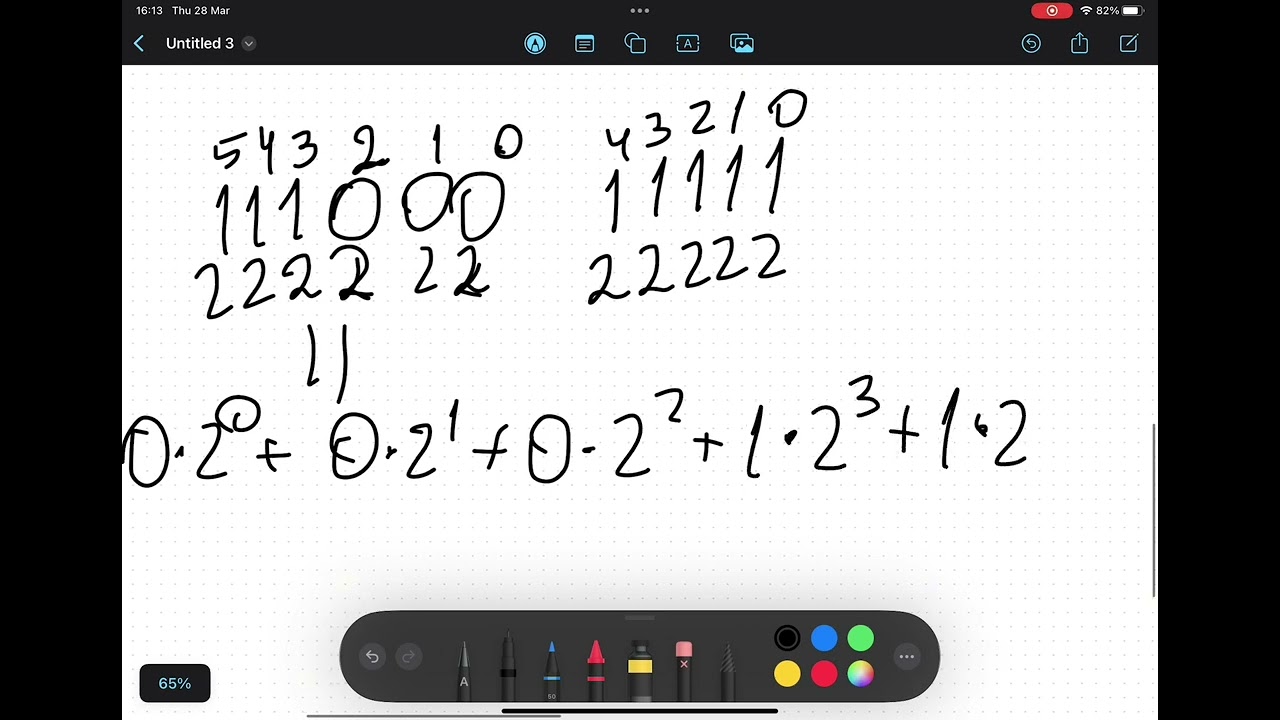 16:13 Thu 28 Mar 82%
Untitled 3
5 4 3 2 1 0
1 1 1 0 0 0
2 2 2 2 2 2
4 3 2 1 0
1 1 1 1 1
2 2 2 2 2
||
0·2⁰ + 0·2¹ + 0·2² + 1·2³ + 1·2
A
A
50
65%